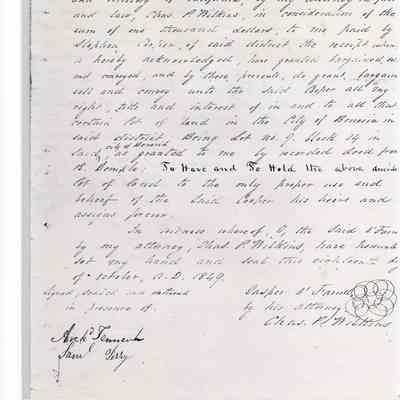 by my attorney in fact
and law, Chas. P. Wilkins, in consideration of the
sum of one thousand dollars, to me paid by
Stephen Cooper, of said district the receipt where
is hereby acknowledged, have granted bargained,
and by these presents, do grant, bargain
sell and convey unto the said Cooper all my
right, title and interest of in and to all that
certain lot of land in the City of Benicia in
said district, Being Lot no. 9, Block 14 in
City of Benicia
said, as granted to me by recorded deed from
R. Semple; To Have and To Hold the above
lot of land to the only proper use and
behoof of the said Cooper his heirs and
assigns forever.
In witness whereof, I, the said O'Farrell
by my attorney, Chas. P. Wilkins, have hereunto
set my hand and seal this eighteenth day
of October, A.D. 1849.
Signed, sealed and delivered
in presence of.
Jasper O'Farrell
by his attorney
Chas. P. Wilkins
Arch'd Tennent
Sam'l Perry